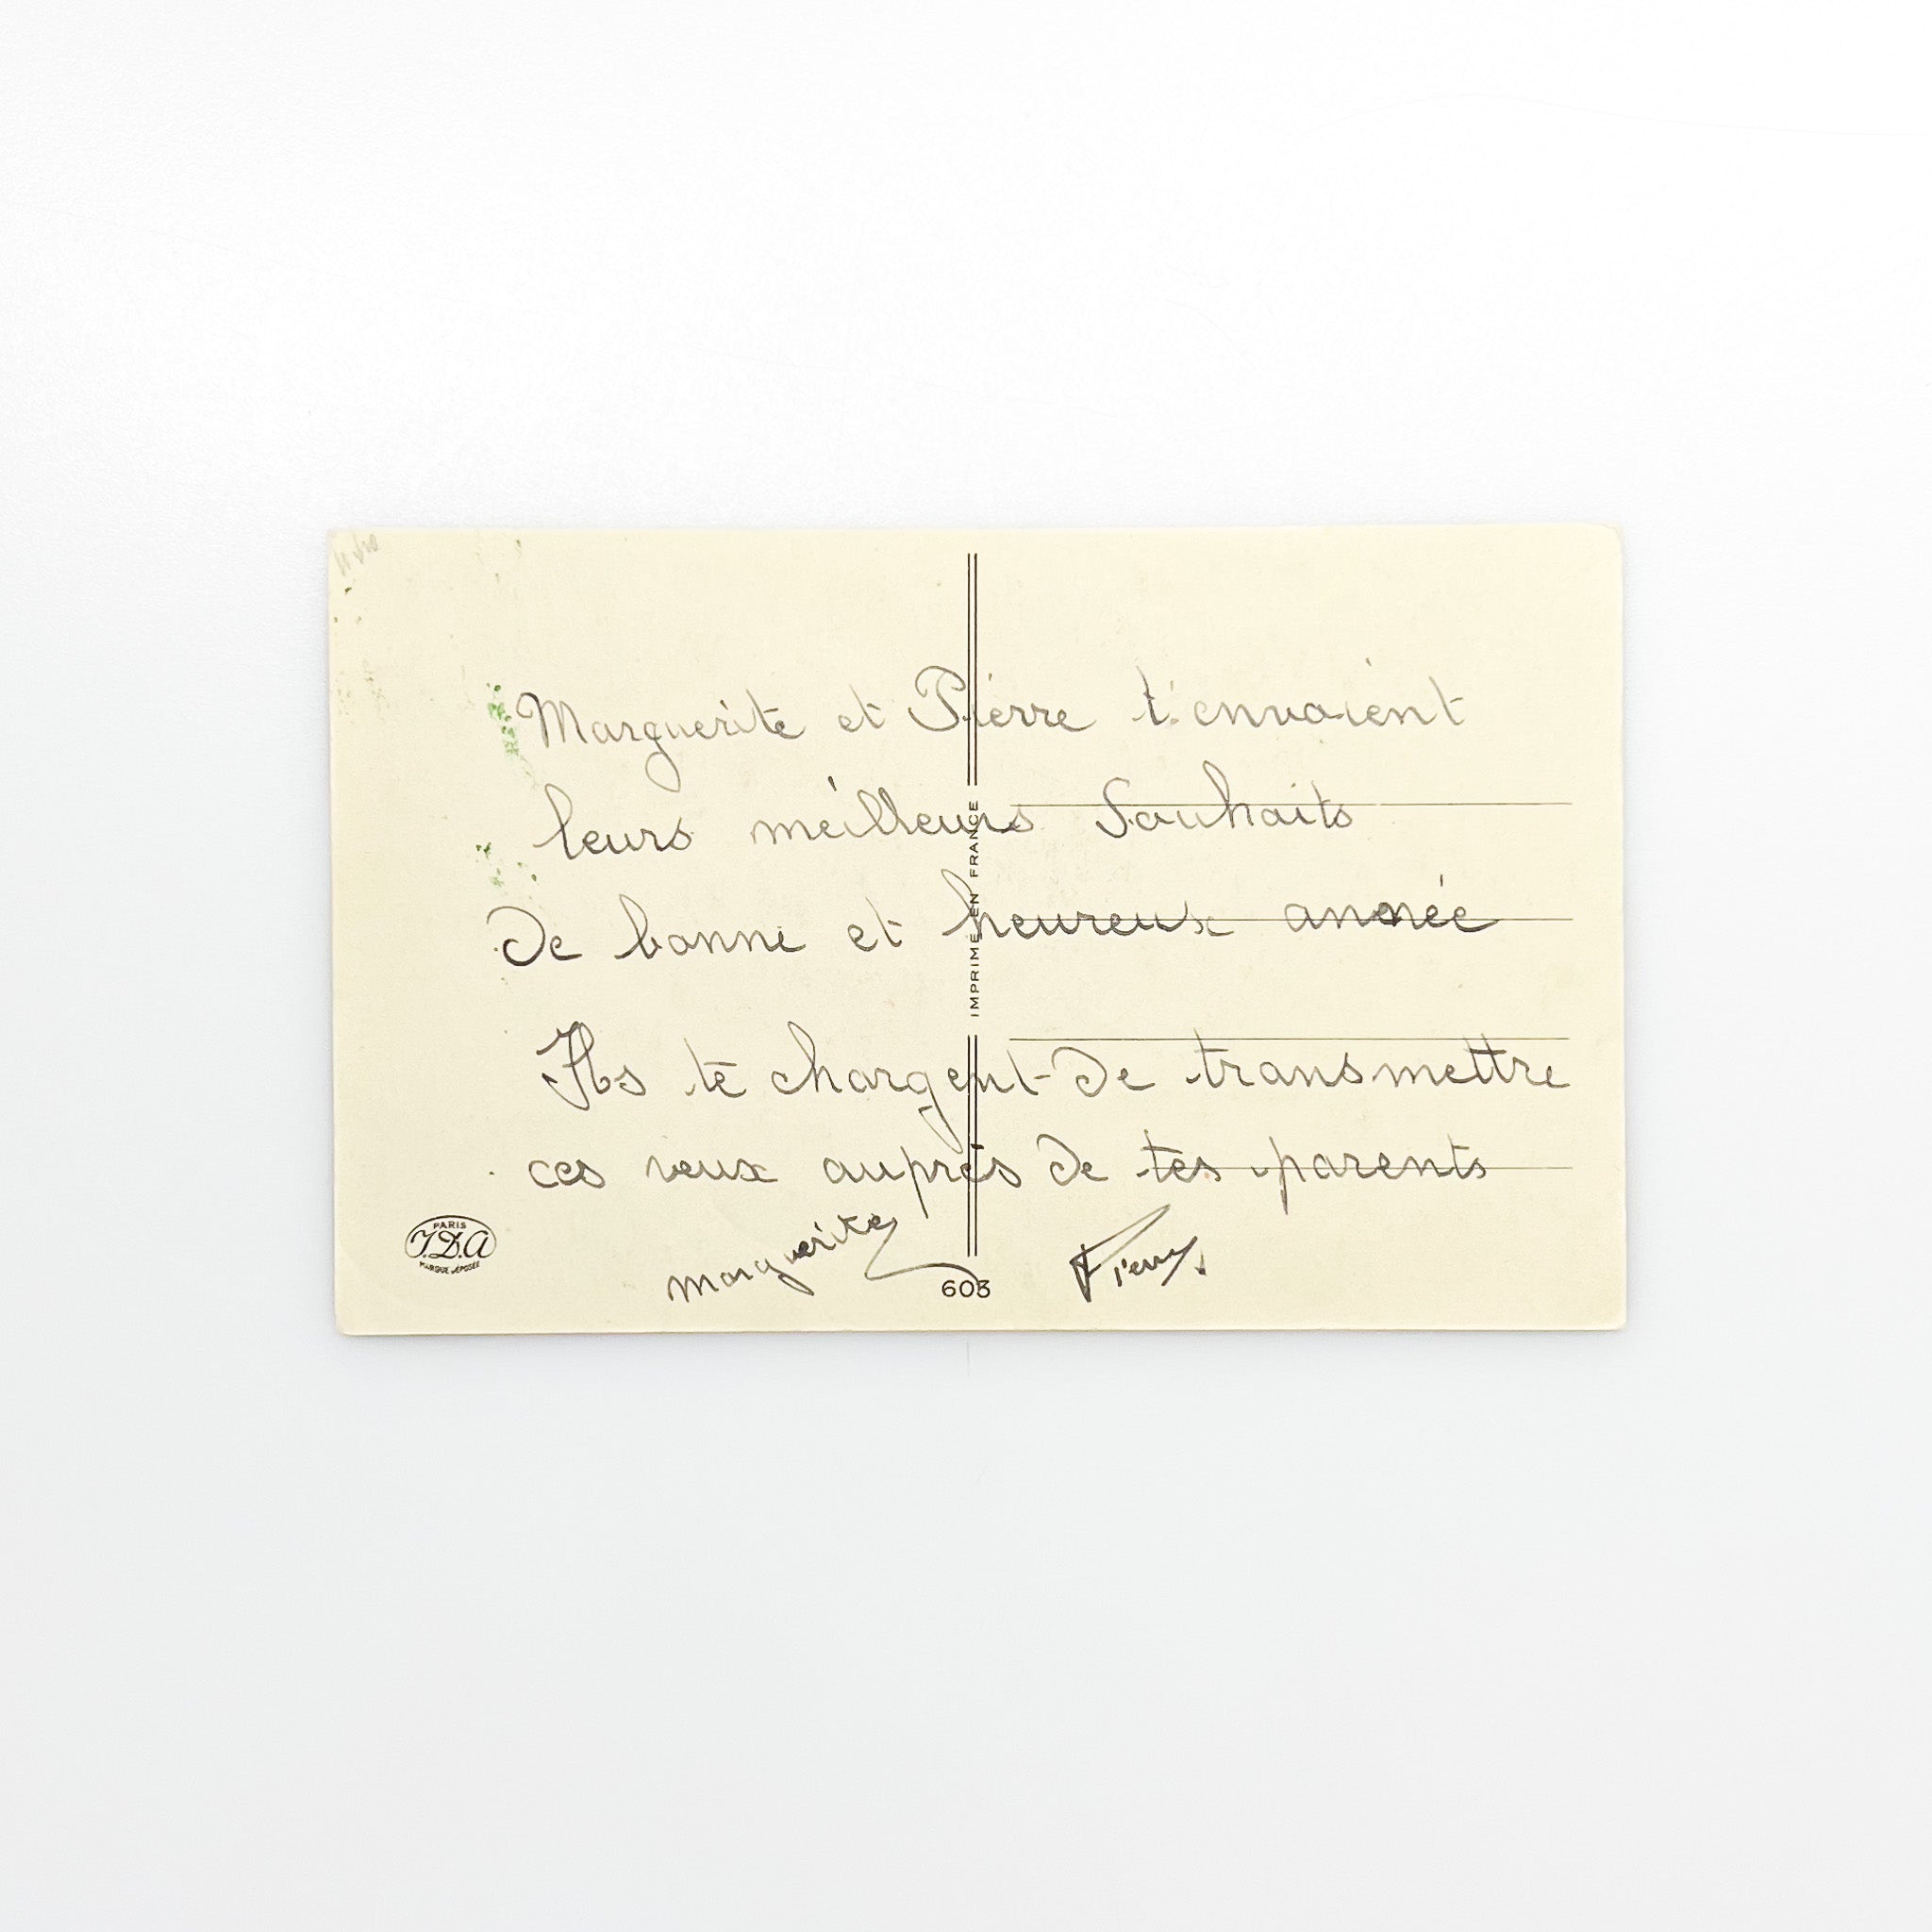 Marguerite et Pierre t'envoient
leurs meilleurs Souhaits
De bonne et heureux année
Ils te chargent de transmettre
ces veux auprès de tes parents
Marguerite Pierre.
IMPRIMÉ EN FRANCE
PARIS
J.D.A
MARQUE DÉPOSÉE
603